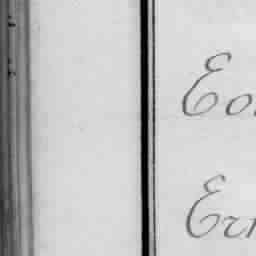 Eo
Ern